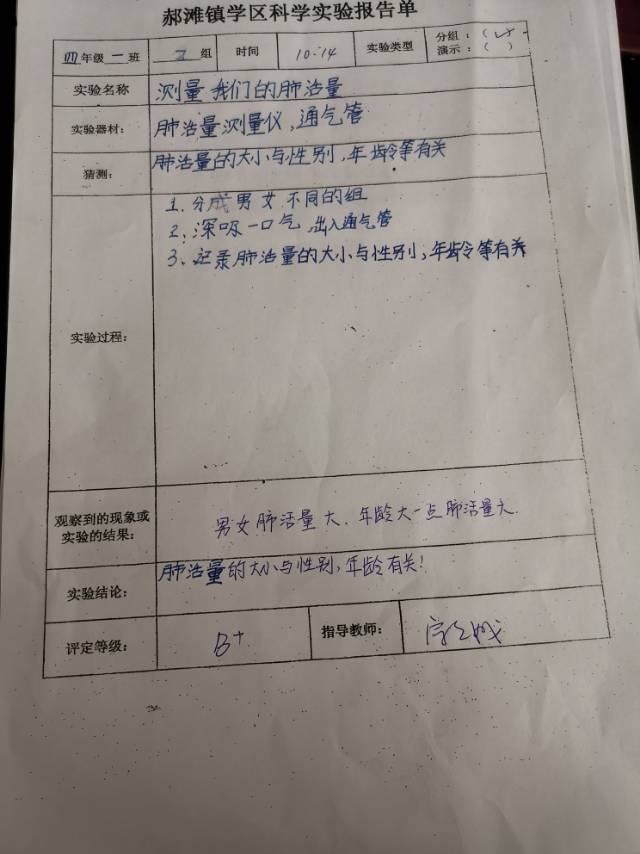 郝滩镇学区科学实验报告单
四年级一班 组 时间 10:14 实验类型 分组:(✓)
演示:( )
实验名称 测量我们的肺活量
实验器材: 肺活量测量仪,通气管
猜测: 肺活量的大小与性别,年龄等有关
实验过程:
1、分成男女不同的组
2、深吸一口气,出入通气管
3、记录肺活量的大小与性别,年龄等有关
观察到的现象或
实验的结果:
男女肺活量大、年龄大一点肺活量大.
实验结论: 肺活量的大小与性别,年龄有关!
评定等级: B+ 指导教师: